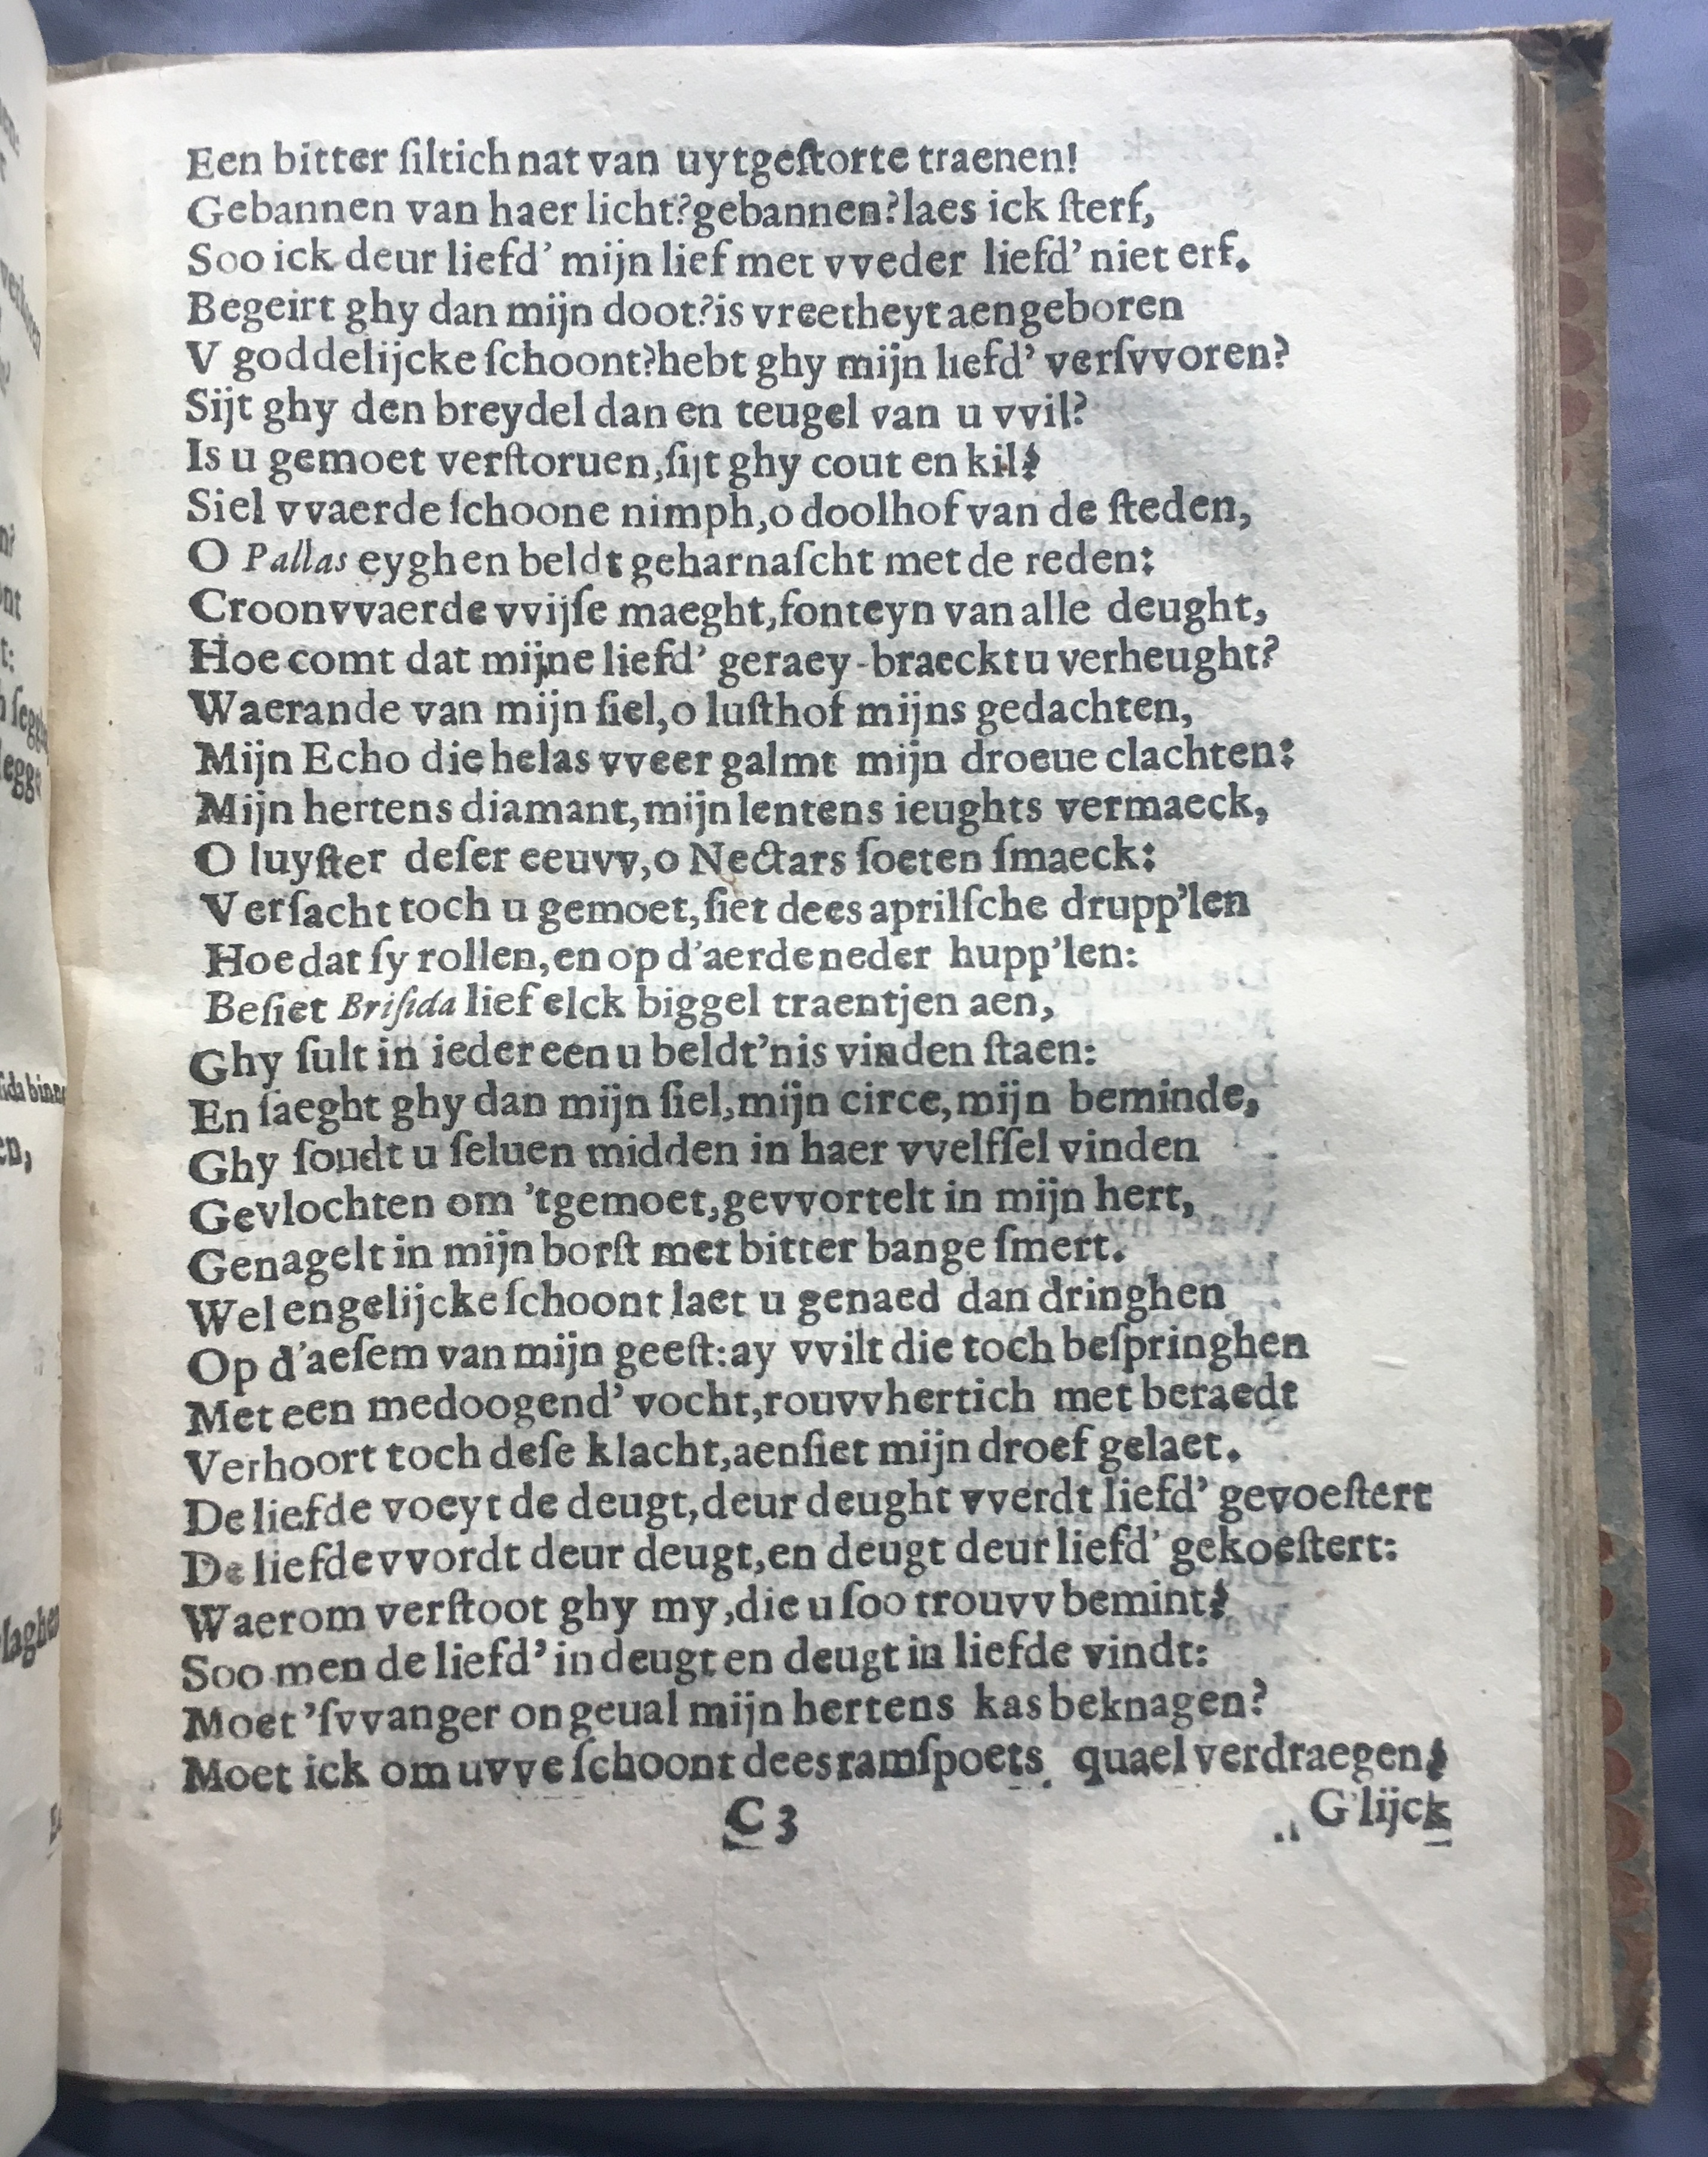 Een bitter ſiltich nat van uytgeſtorte traenen!
Gebannen van haer licht? gebannen? laes ick ſterf,
Soo ick deur liefd’ mijn lief met vveder liefd’ niet erf.
Begeirt ghy dan mijn doot? is vreetheyt aengeboren
V goddelijcke ſchoont? hebt ghy mijn liefd’ verſvvoren?
Sijt ghy den breydel dan en teugel van u vvil?
Is u gemoet verſtoruen, ſijt ghy cout en kil?
Siel vvaerde ſchoone nimph, o doolhof van de ſteden,
O Pallas eyghen beldt geharnaſcht met de reden:
Croonvvaerde vvijſe maeght, fonteyn van alle deught,
Hoe comt dat mijne liefd’ geraey-braeckt u verheught?
Waerande van mijn ſiel, o luſthof mijns gedachten,
Mijn Echo die helas vveer galmt mijn droeue clachten:
Mijn hertens diamant, mijn lentens ieughts vermaeck,
O luyſter deſer eeuvv, o Nectars ſoeten ſmaeck:
Verſacht toch u gemoet, ſiet dees aprilſche drupp’len
Hoe dat ſy rollen, en op d’aerde neder hupp’len:
Beſiet Briſida lief elck biggel traentjen aen,
Ghy ſult in ieder een u beldt’nis vinden ſtaen:
En ſaeght ghy dan mijn ſiel, mijn circe, mijn beminde,
Ghy ſoudt u ſeluen midden in haer vvelfſel vinden
Gevlochten om ’tgemoet, gevvortelt in mijn hert,
Genagelt in mijn borſt met bitter bange ſmert.
Wel engelijcke ſchoont laet u genaed dan dringhen
Op d’aeſem van mijn geeſt: ay vvilt die toch beſpringhen
Met een medoogend’ vocht, rouvvhertich met beraedt
Verhoort toch deſe klacht, aenſiet mijn droef gelaet.
De liefde voeyt de deugt, deur deught vverdt liefd’ gevoeſtert
De liefde vvordt deur deugt, en deugt deur liefd’ gekoeſtert:
Waerom verſtoot ghy my, die u ſoo trouvv bemint?
Soo men de liefd’ in deugt en deugt in liefde vindt:
Moet ’ſvvanger ongeual mijn hertens kas beknagen?
Moet ick om uvve ſchoont dees ramſpoets quael verdraegen?
C 3
G'lijck